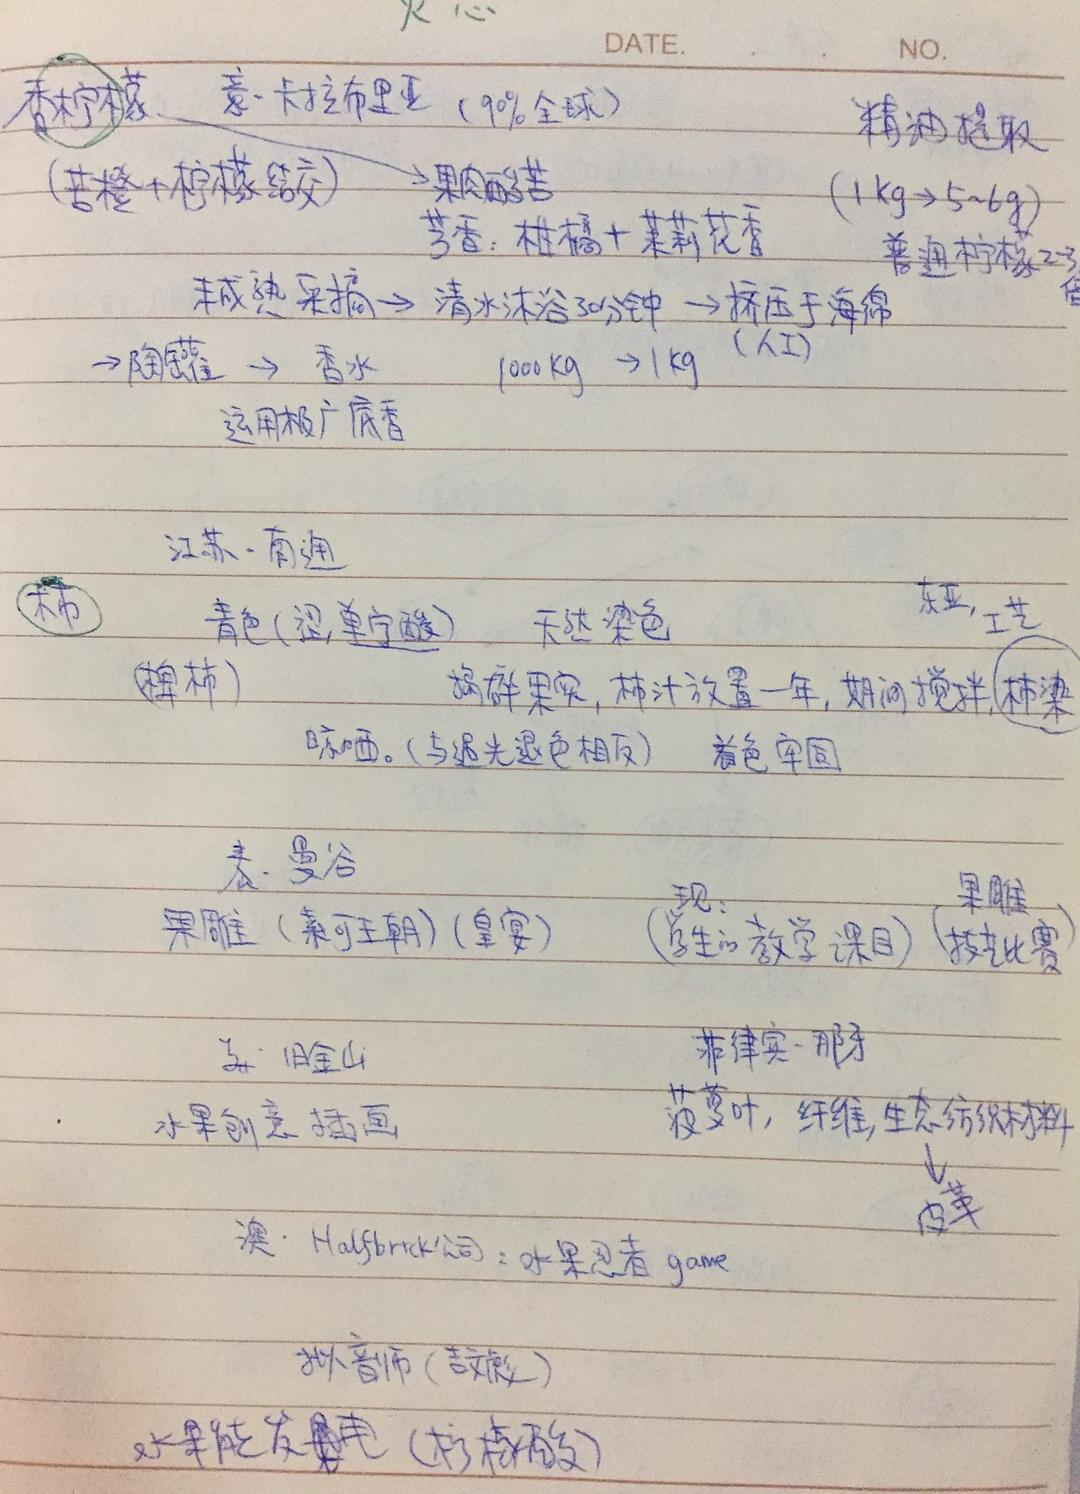 DATE. . . NO.
香柠檬 意·卡拉布里亚 (90%全球) 精油提取
(苦橙+柠檬结交) →果肉酸苦 (1kg→5~6g)
芳香: 柑橘+茉莉花香 普通柠檬2-3倍
未成熟采摘→ 清水沐浴30分钟 →挤压于海绵
(人工)
→陶罐 → 香水 1000kg →1kg
运用极广底香
江苏·南通
柿 青色(涩,单宁酸) 天然染色 东亚,工艺
(椑柿) 捣碎果实,柿汁放置一年,期间搅拌,柿染
晾晒。(与遇光退色相反) 着色牢固
泰·曼谷
现: 果雕
果雕 (素可王朝)(皇宴) (学生的教学课目) (技艺比赛)
美·旧金山 菲律宾·那牙
水果创意插画 菠萝叶,纤维,生态纺织材料
↓
皮革
澳·Halfbrick公司:水果忍者 game
拟音师(吉文彪)
水果能发电 (柠檬酸)